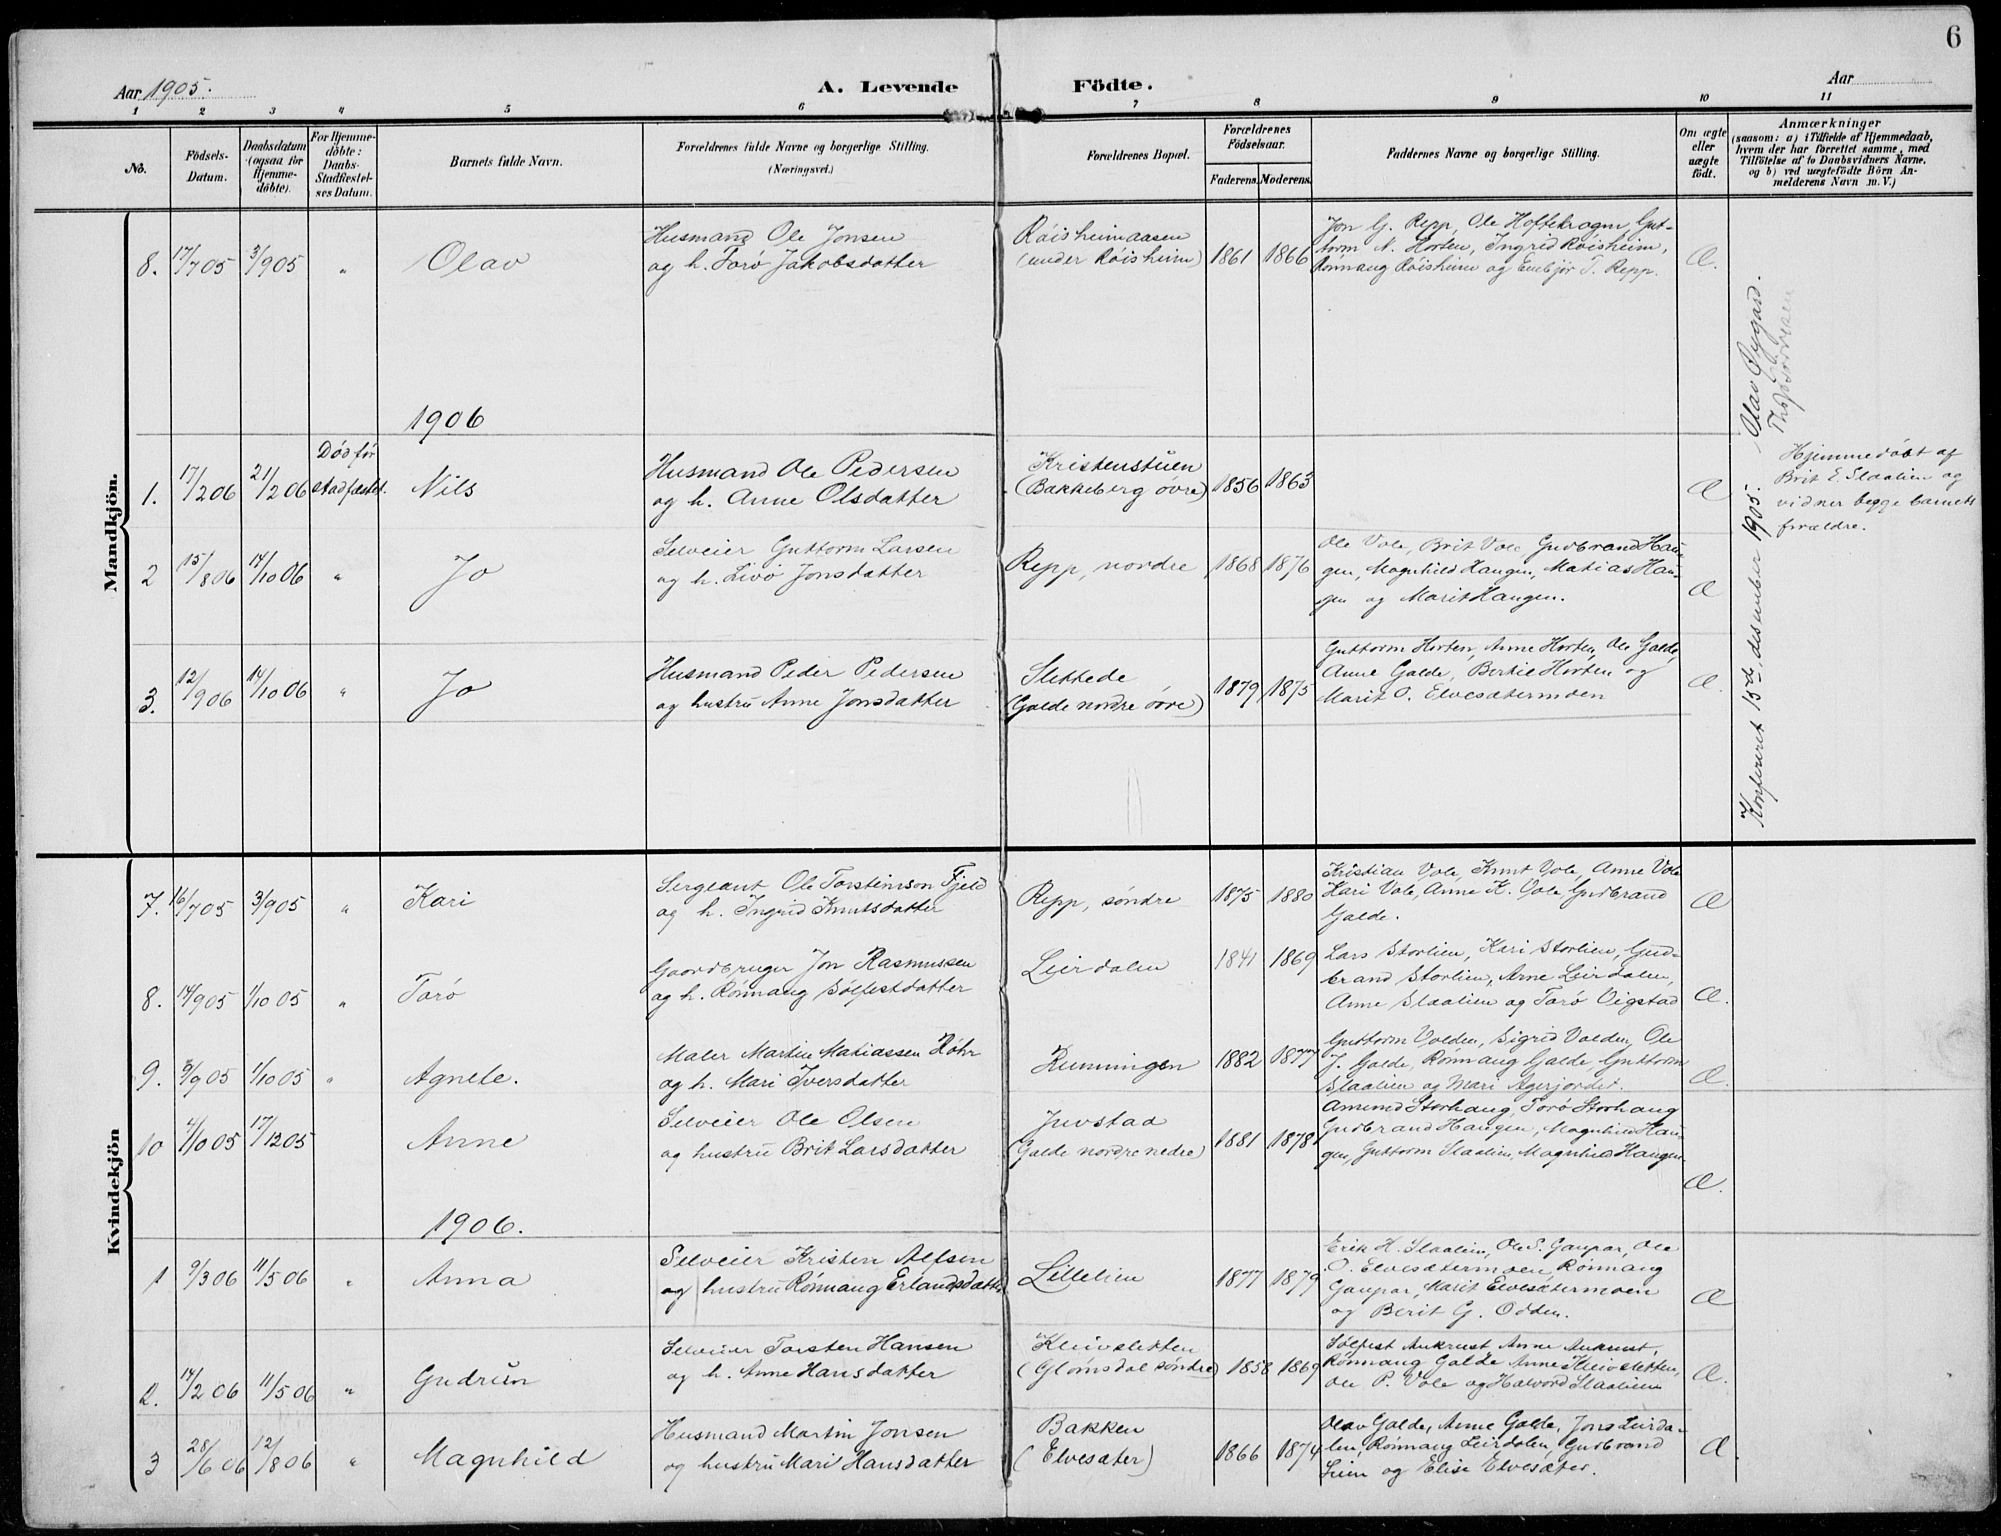 6
Aar 1905.
A. Levende Födte.
Aar
1 2 3 4 5 6 7 8 9 10 11
No.
Födsels-Datum.
Daabsdatum (ogsaa for Hjemme-döbte).
For Hjemme-döbte: Daabs-Stadfæstel-ses Datum.
Barnets fulde Navn.
Forældrenes fulde Navne og borgerlige Stilling. (Næringsvei.)
Forældrenes Bopæl.
Forældrenes Födselsaar.
Faderens. Moderens.
Faddernes Navne og borgerlige Stilling.
Om ægte eller uægte födt.
Anmærkninger
(saasom: a) i Tilfælde af Hjemmedaab, hvem der har forrettet samme, med Tilföielse af to Daabsvidners Navne, og b) ved uægtefödte Börn An-melderens Navn m. V.)
Mandkjön.
8. 17/7 05 3/9 05 " Olav
Husmand Ole Jonsen
og h. Torø Jakobsdatter
Røisheimaasen
(under Røisheim)
1861 1866
Jon G. Repp, Ole Hoftekrogen, Gut-
torm N. Horten, Ingrid Røisheim,
Rønnaug Røisheim og Embjør T. Repp.
Æ.
1906
1. 17/2 06 21/2 06 Død før stadfæstet. Nils
Husmand Ole Pedersen
og h. Anne Olsdatter
Kristenstuen
(Bakkeberg øvre)
1856 1863
Æ
Hjemmedøbt af
Brit E. Slaalien og
vidner begge barnets
forældre.
2 15/8 06 14/10 06 " Jo
Selveier Guttorm Larsen
og h. Livø Jonsdatter
Repp, nordre
1868 1876
Ole Vole, Brit Vole Gudbrand Hau-
gen, Magnhild Haugen, Matias Hau-
gen og Marit Haugen.
Æ
3. 12/9 06 14/10 06 " Jo
Husmand Peder Pedersen
og hustru Anne Jonsdatter
Slettede
(Galde nordre øvre)
1879 1875
Guttorm Horten, Anne Horten, Ole Galde,
Anne Galde, Bertil Horten og
Marit O. Elvesætermoen
Æ.
Konfereret 15de desember 1905. Olav Bygard.
Kvindekjön
7. 16/7 05 3/9 05 " Kari
Sergeant Ole Torsteinson Fjeld
og h. Ingrid Knutsdatter
Repp, søndre
1875 1880
Kristian Vole, Knut Vole, Anne Vole
Kari Vole, Anne K. Vole, Gudbrand
Galde.
Æ
8. 14/9 05 1/10 05 " Torø
Gaardbruger Jon Rasmussen
og h. Rønnaug Sølfestdatter
Leirdalen
1841 1869
Lars Storlien, Kari Storlien, Gud-
brand Storlien, Arne Leirdalen,
Anne Slaalien og Torø Vigstad
Æ.
9. 8/9 05 1/10 05 " Agnete.
Maler Martin Matiassen Røhr
og h. Mari Iversdatter
Rumningen
1882 1877
Guttorm Volden, Sigrid Volden, Ole
J. Galde, Rønnaug Galde, Guttorm
Slaalien og Mari Agerjordet.
Æ.
10 4/10 05 17/12 05 Anne
Selveier Ole Olsen
og hustru Brit Larsdatter
Juvstad
(Galde nordre nedre)
1881 1878
Amund Storhaug, Torø Storhaug
Gudbrand Haugen, Magnhild Hau-
gen, Guttorm Slaalien, Magnhild Haugen
Æ.
1906.
1 9/3 06 11/5 06 " Anna
Selveier Kristen Alfsen
og hustru Rønnaug Erlandsdatter
Lillelien
1877 1879
Erik H. Slaalien, Ole S. Gaupar, Ole
O. Elvesætermoen, Rønnaug
Gaupar, Marit Elvesætermoen
og Berit G. Odden.
Æ
2. 14/2 06 11/5 06 " Gudrun
Selveier Torsten Hansen
og h. Anne Hansdatter
Kleivsletten
(Glømsdal søndre)
1858 1869
Sølfest Aukrust, Anne Aukrust,
Rønnaug Galde, Anne Kleivsletten,
Ole P. Vole og Halvord Slaalien
Æ.
3 28/6 06 12/8 06 " Magnhild
Husmand Martin Jonsen
og hustru Mari Hansdatter
Bakken
(Elvesæter)
1866 1874
Olav Galde, Anne Galde, Jons Leirda-
len, Rønnaug Leirdalen, Gudbrand
Lien og Elise Elvesæter.
Æ